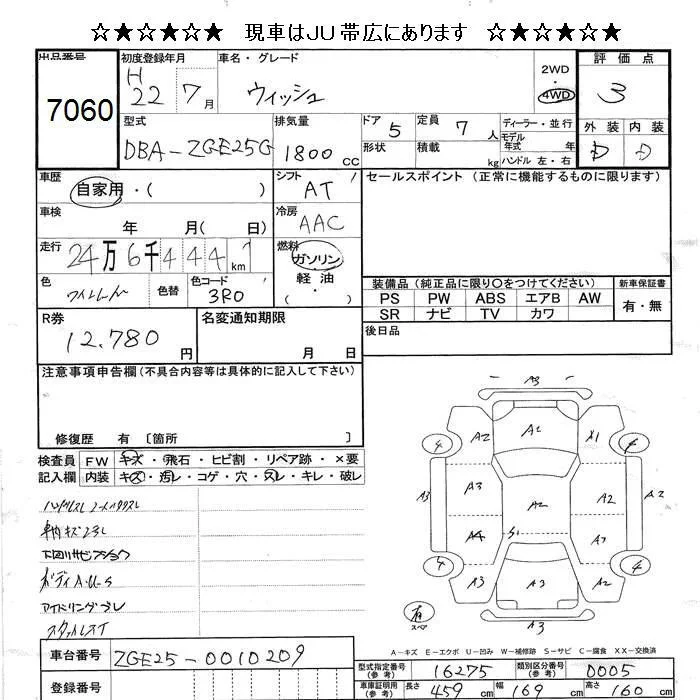 ☆★☆★☆★ 現車はJU帯広にあります ☆★☆★☆★
出品番号 7060
初度登録年月 H 22 7月
車名・グレード ウィッシュ
2WD
4WD
評価点 3
外装 内装
D D
型式 DBA-ZGE25G
排気量 1800cc
ドア 5
形状
定員 7人
積載 kg
ディーラー・並行
モデル年式 年
ハンドル 左・右
車歴 自家用・( )
シフト AT
セールスポイント (正常に機能するものに限ります)
車検 年 月( 日)
冷房 AAC
走行 24万6千444km
燃料 ガソリン
軽油
・( )
色 色替 色コード 3R0
装備品 (純正品に限り○をつけてください)
新車保証書
PS PW ABS エアB AW
SR ナビ TV カワ
有・無
R券 12.780円
名変通知期限 月 日
後日品
注意事項申告欄 (不具合内容等は具体的に記入して下さい)
修復歴 有 [箇所 ]
検査員記入欄
FW キズ・飛石・ヒビ割・リペア跡・×要
内装 キズ・汚レ・コゲ・穴・スレ・キレ・破レ
車内キズヨゴレ
下回りサビ
ボディA・U・S
アイドリングブレ
スタッドレスT
A3
A2 A2 X1
4 4
A3 A3 A2 A2 A2
A4 S1 A1
4 4
A3 A3 A2
A3
有
スペア
A-キズ E-エクボ U-凹み W-補修跡 S-サビ C-腐食 XX-交換済
車台番号 ZGE25-0010209
型式指定番号(参考) 16275
類別区分番号(参考) 0005
登録番号
車庫証明用(参考) 長さ 459cm 幅 169cm 高さ 160cm